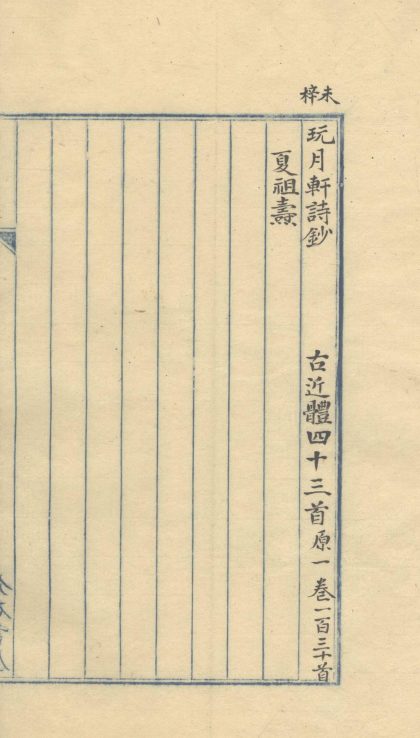 未梓
玩月軒詩鈔 古近體四十三首原一卷一百三十首
夏祖燾